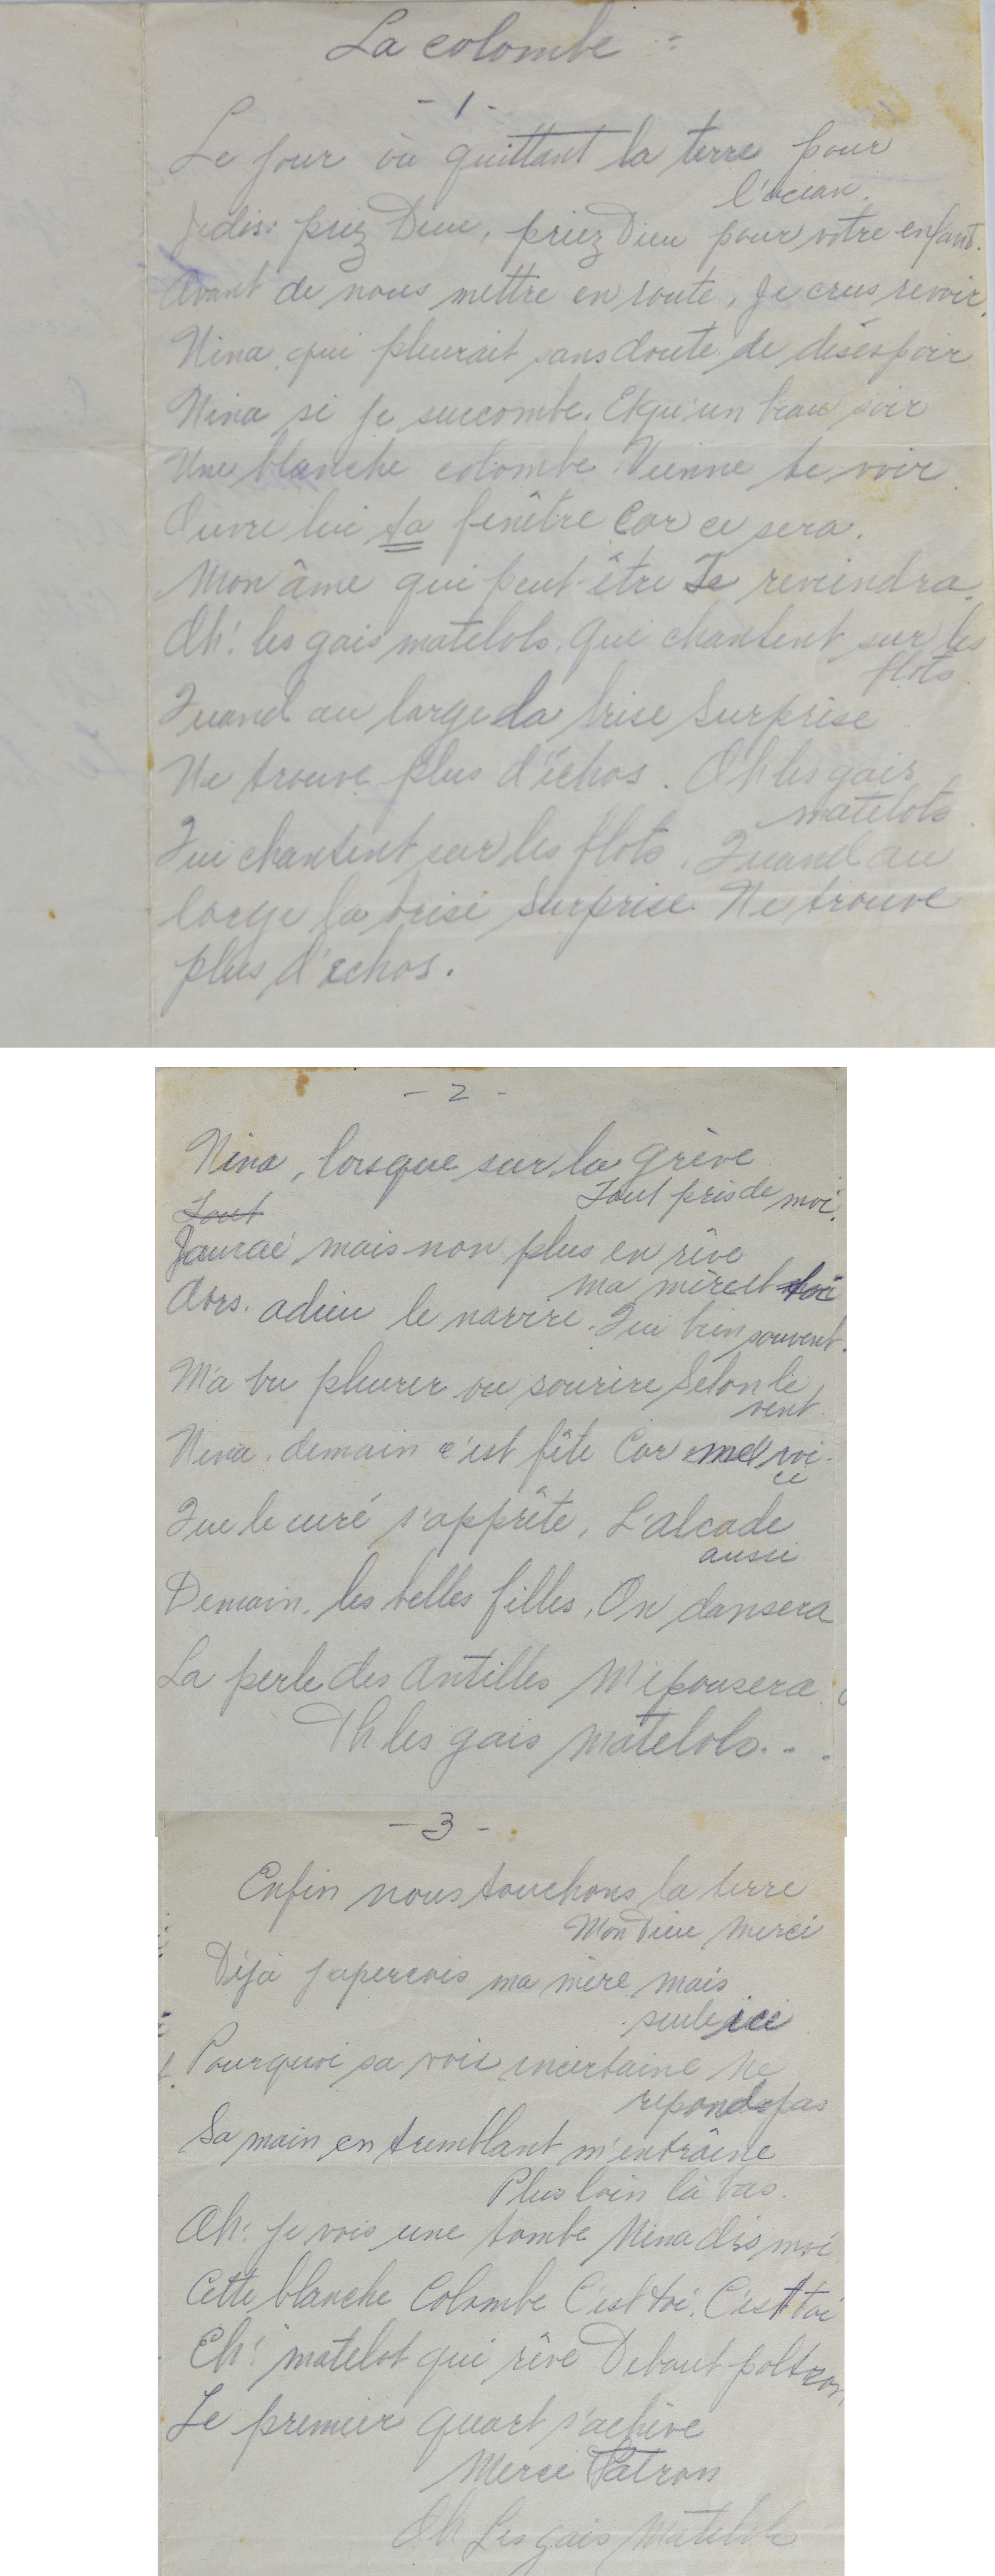 La colombe =
- 1 -
Le jour où quittant la terre pour
l'océan.
Je dis: priez Dieu, priez Dieu pour votre enfant.
Avant de nous mettre en route, Je crus revoir,
Nina qui pleurait sans doute de désespoir
Nina si je succombe. Et qu'un beau soir
Une blanche colombe Vienne te voir.
Ouvre lui ta fenêtre Car ce sera.
Mon âme qui peut-être Te reviendra.
Oh! les gais matelots. Qui chantent sur les
flots.
Quand au large la brise Surprise
Ne trouve plus d'échos. Oh les gais
matelots.
Qui chantent sur les flots. Quand au
large la brise Surprise Ne trouve
plus d'échos.
- 2 -
Nina, lorsque sur la grève
Tout près de moi.
Tout
J'aurai mais non plus en rêve
ma mère et toi
Alors. adieu le navire. Qui bien souvent.
M'a vu pleurer ou sourire Selon le
vent.
Nina. demain c'est fête Car me voi-
ci
Que le curé s'apprête, L'alcade
aussi
Demain, les belles filles, On dansera
La perle des Antilles M'épousera.
Oh les gais matelots...
- 3 -
Enfin nous touchons la terre
Mon Dieu Merci
Déjà j'aperçois ma mère mais
seule ici
Pourquoi sa voix incertaine Ne
repond pas
Sa main en tremblant m'entraîne
Plus loin là bas.
Oh! je vois une tombe Nina dis moi
Cette blanche Colombe C'est toi. C'est toi
Eh! matelot qui rêve Debout poltron
Le premier quart s'achève
Merci Patron
Oh Les gais Matelots